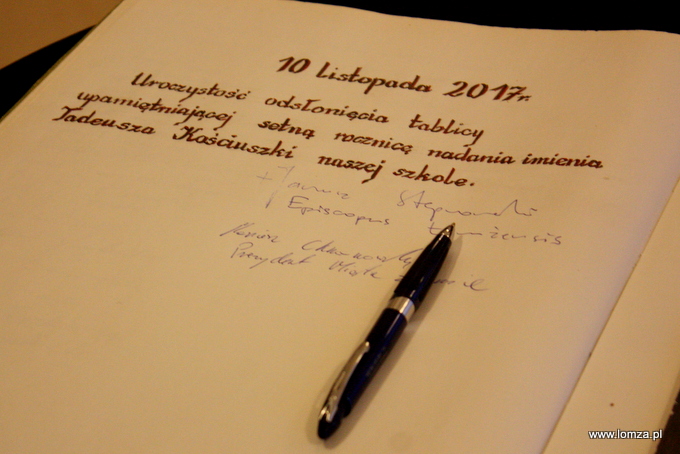 10 Listopada 2017r.
Uroczystość odsłonięcia tablicy
upamiętniającej setną rocznicę nadania imienia
Tadeusza Kościuszki naszej szkole.
+ Janusz Stepnowski
Episcopus Łomżensis
Prezydent Miasta
www.lomza.pl